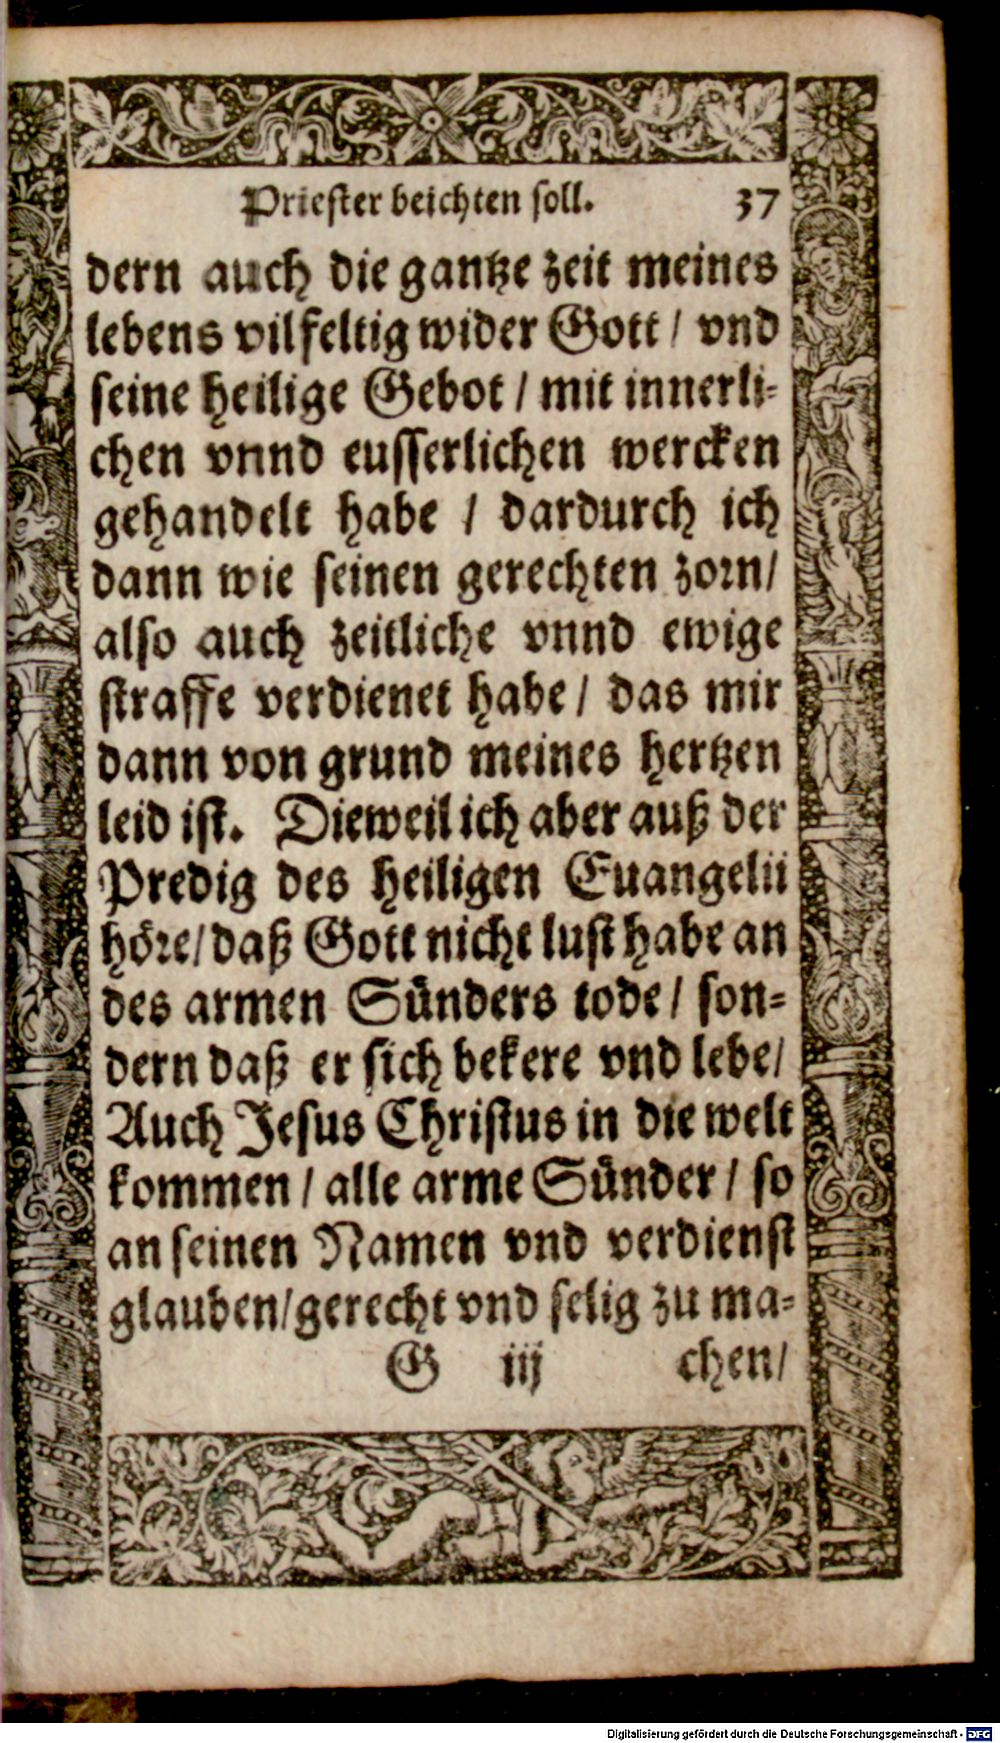 Priester beichten soll. 37
dern auch die gantze zeit meines
lebens vilfeltig wider Gott / vnd
seine heilige Gebot / mit innerli-
chen vnnd eusserlichen wercken
gehandelt habe / dardurch ich
dann wie seinen gerechten zorn/
also auch zeitliche vnnd ewige
straffe verdienet habe / das mir
dann von grund meines hertzen
leid ist. Dieweil ich aber auß der
Predig des heiligen Euangelii
höre/ daß Gott nicht lust habe an
des armen Sünders tode / son-
dern daß er sich bekere vnd lebe/
Auch Jesus Christus in die welt
kommen / alle arme Sünder / so
an seinen Namen vnd verdienst
glauben/gerecht vnd selig zu ma-
G iij chen/
Digitalisierung gefördert durch die Deutsche Forschungsgemeinschaft - DFG